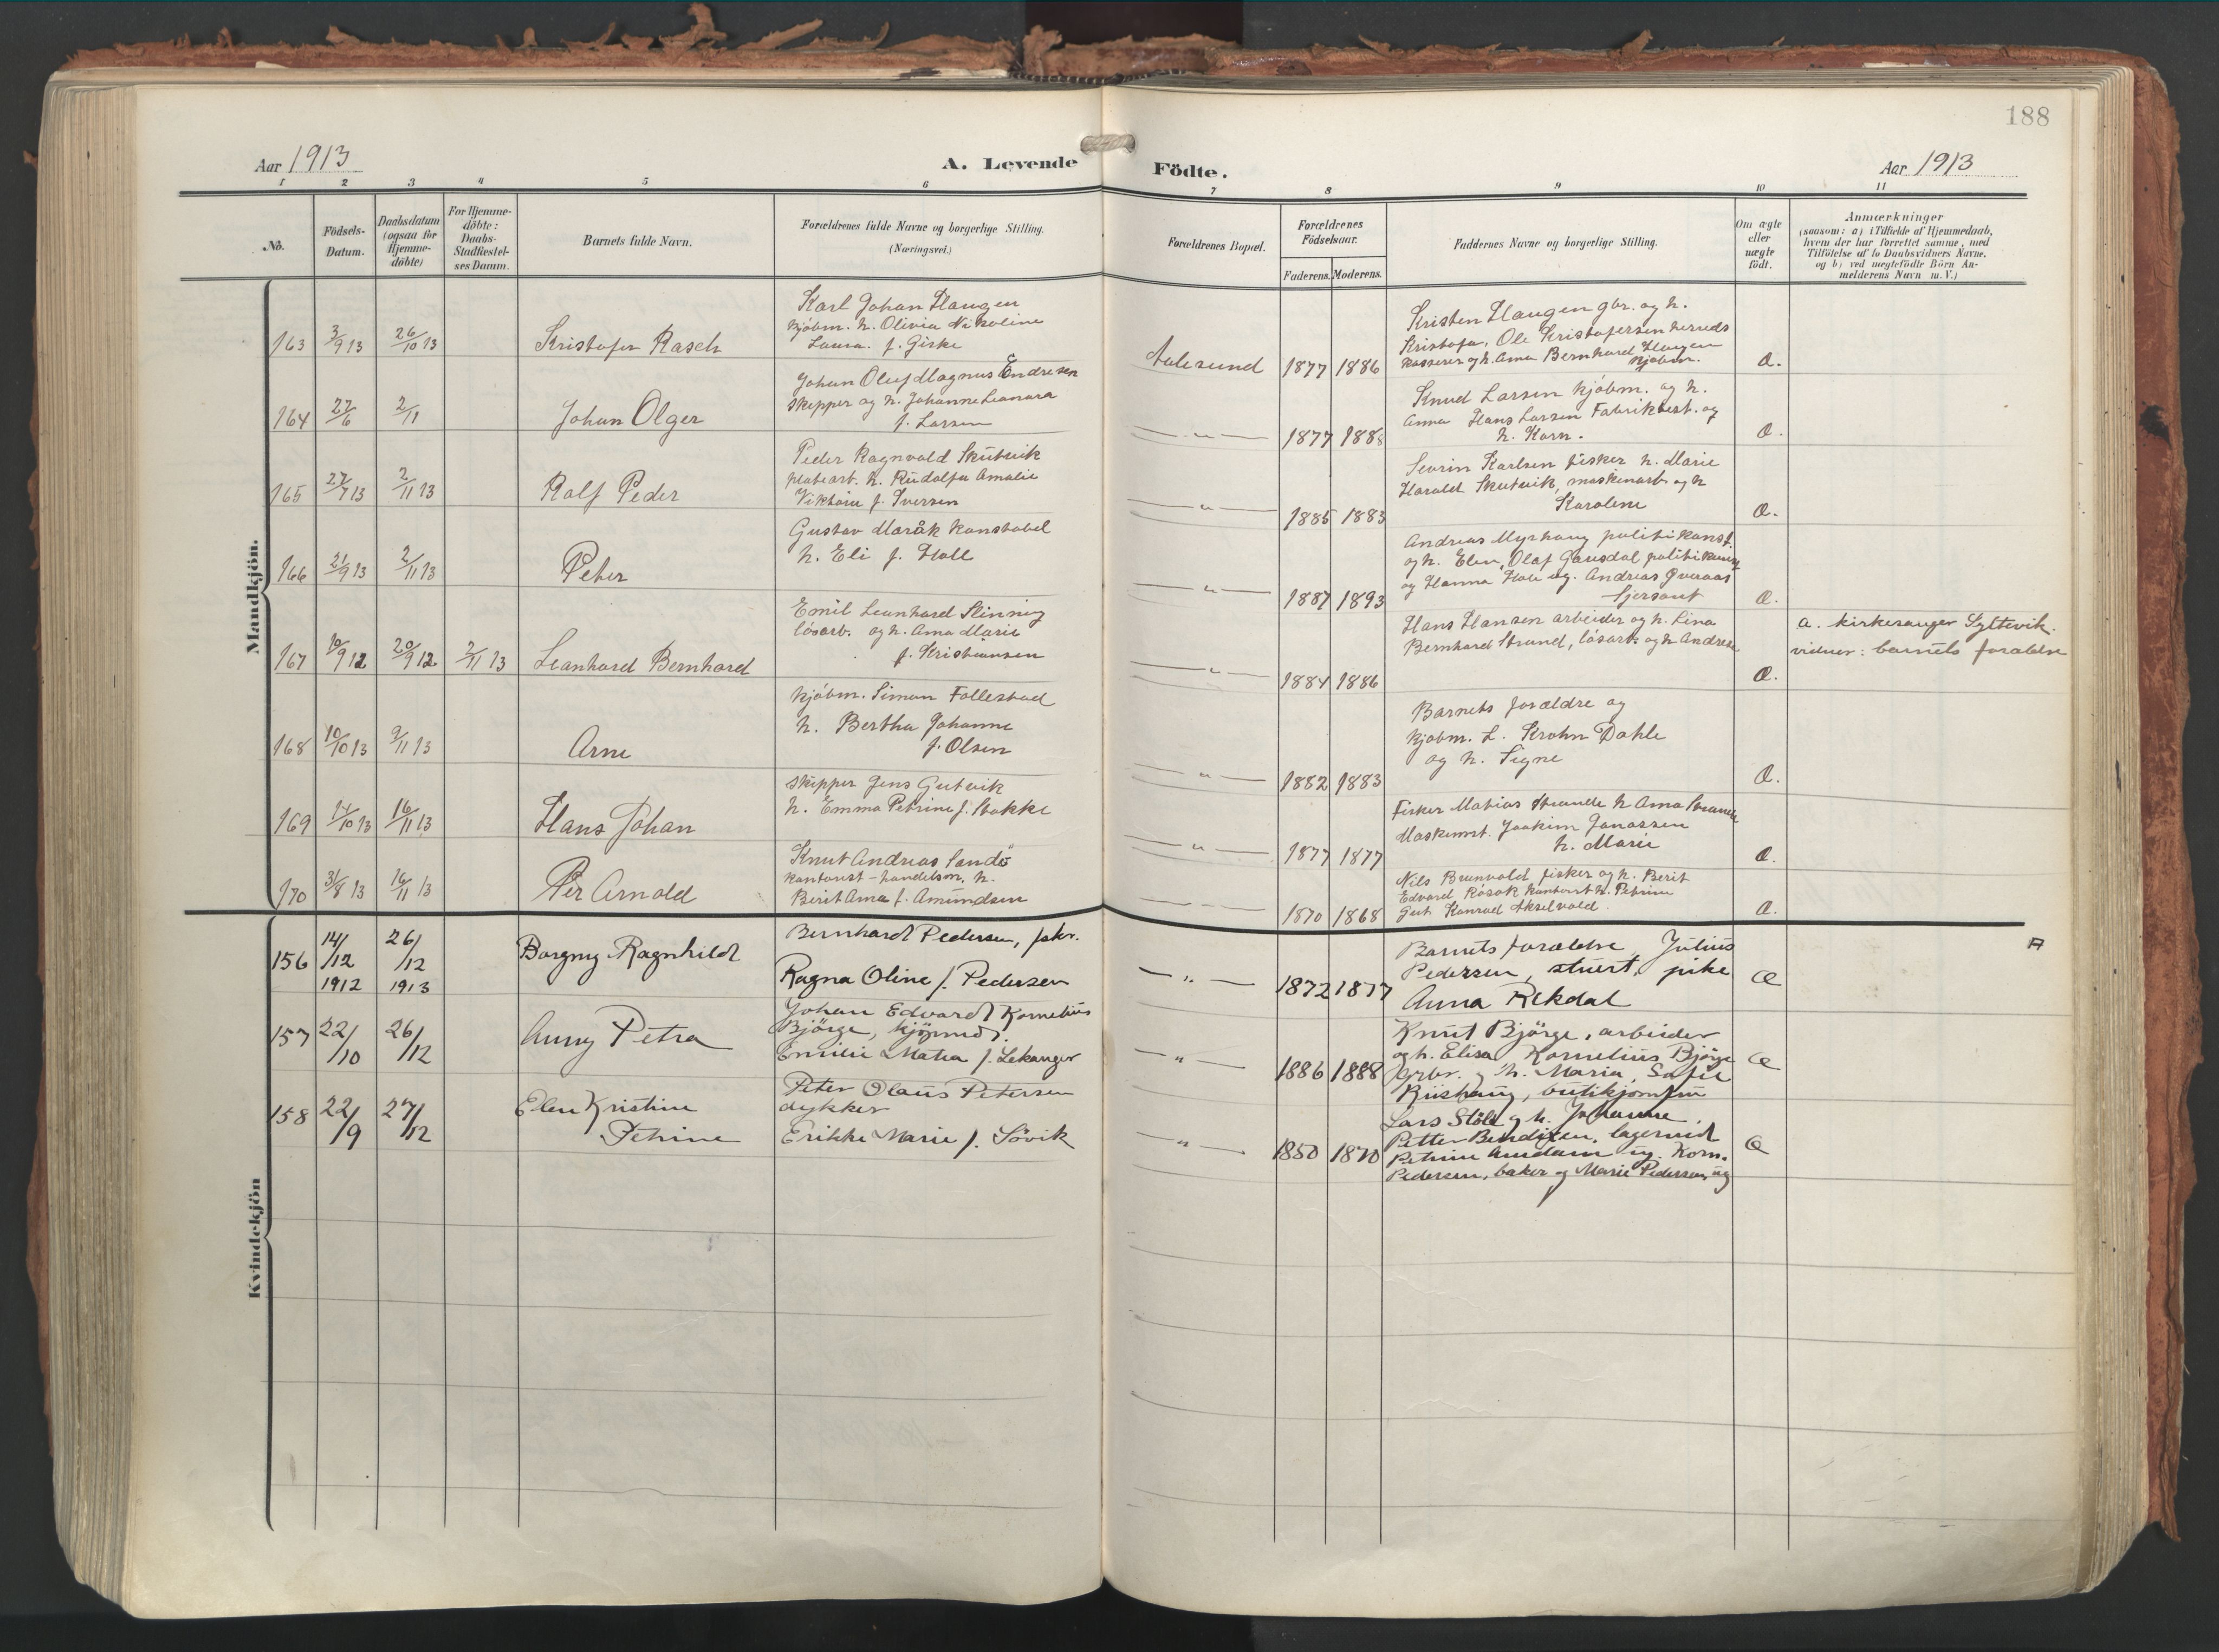 188
Aar 1913
A. Levende
Födte.
Aar 1913
1 2 3 4 5 6 7 8 9 10 11
No.
Födsels-
Datum.
Daabsdatum
(ogsaa for
Hjemme-
döbte)
For Hjemme-
döbte:
Daabs-
Stadfæstel-
ses Datum.
Barnets fulde Navn.
Forældrenes fulde Navne og borgerlige Stilling.
(Næringsvei.)
Forældrenes Bopæl.
Forældrenes
Födselsaar.
Faderens. Moderens.
Faddernes Navne og borgerlige Stilling.
Om ægte
eller
uægte
födt.
Anmærkninger
(saasom: a) i Tilfælde af Hjemmedaab,
hvem der har forrettet samme, med
Tilföielse af to Daabsvidners Navne.
og b) ved uægtefödte Börn An-
melderens Navn m. V.)
Mandkjön.
163 3/9 13 26/10 13
Kristofer Rasch
Karl Johan Haugen
kjöbm. h. Olivia Nikoline
Laura f. Giske
Aalesund
1877 1886
Kristen Haugen gbr. og h.
Kristofa, Ole Kristofersen herreds
kasserer og h. Anna Bernhard Haugen
kjöbm.
Æ.
164 27/6 2/11
Johan Olger
Johan Oluf Magnus Endresen
skipper og h. Johanne Leonara
f. Larsen
— " —
1877 1888
Knud Larsen kjöbm. og h.
Anna Hans Larsen Fabrikbest. og
h. Karn.
Æ.
165 27/7 13 2/11 13
Rolf Peder
Peder Ragnvald Skutvik
platearb. h. Rudolfa Amalie
Viktoria f. Iversen
— " —
1885 1883
Sevrin Karlsen fisker h. Marie
Harald Skutvik, maskinarb. og h
Karoline
Æ.
166 21/9 13 2/11 13
Peter
Gustav Maråk konstabel
h. Eli f. Hall
— " —
1887 1893
Andreas Myrhaug politikonst.
og h. Elen, Olaf Gausdal politikonst
og Hanna Hole ug. Andreas Øveraas
sjersant
Æ.
167 10/9 12 20/9 12 2/11 13
Leonhard Bernhard
Emil Leonhard Slinning
lösarb. og h. Anna Marie
f. Kristiansen
— " —
1884 1886
Hans Hansen arbeider og h. Lina
Bernhard Strand, lösarb. og h. Andrea
Æ.
a. kirkesanger Syltevik.
vidner: barnets forældre
168 10/10 13 9/11 13
Arne
kjöbm. Simon Follestad
h. Bertha Johanne
f. Olsen
— " —
1882 1883
Barnets forældre og
kjöbm. L. Krohn Dahle
og h. Signe
Æ.
169 14/10 13 16/11 13
Hans Johan
skipper Jens Gutvik
h. Emma Petrine f. Stokke
— " —
1877 1877
Fisker Matias Strande h Anna Strande
Maskinist. Joakim Jonassen
h. Marie
Æ.
170 31/8 13 16/11 13
Per Arnold
Knut Andreas Sandö
kontorist - handelsm. h.
Berit Anna f. Amundsen
— " —
1870 1868
Nils Brunvold fisker og h. Berit
Edvard Råsok kontorist h. Petrine
Gurt Konrad Akselvold
Æ.
Kvindekjön
156 14/12 1912 26/12 1913
Borgny Ragnhild
Bernhard Pedersen, fsker.
Ragna Oline f. Pedersen
— " —
1872 1877
Barnets forældre, Julius
Pedersen, stuert, pike
Anna Rekdal
Æ
157 22/10 26/12
Anny Petra
Johan Edvard Kornelius
Bjørge, kjøpmd.
Emilie Matea f. Lekanger
— " —
1886 1888
Knut Bjørge, arbeider
og h. Elisa Kornelius Bjørge
grbr. og h. Maria, Sofie
Riishaug, butikjomfru
Æ
158 22/9 27/12
Elen Kristine
Petrine
Peter Olaus Petersen
dykker
Erikke Marie f. Sövik
— " —
1850 1870
Lars Stöle og h. Johanne,
Petter Bendixen, lagermd
Petrine Amdam ug. Korn.
Pedersen, baker og Marie Pedersen, ug
Æ